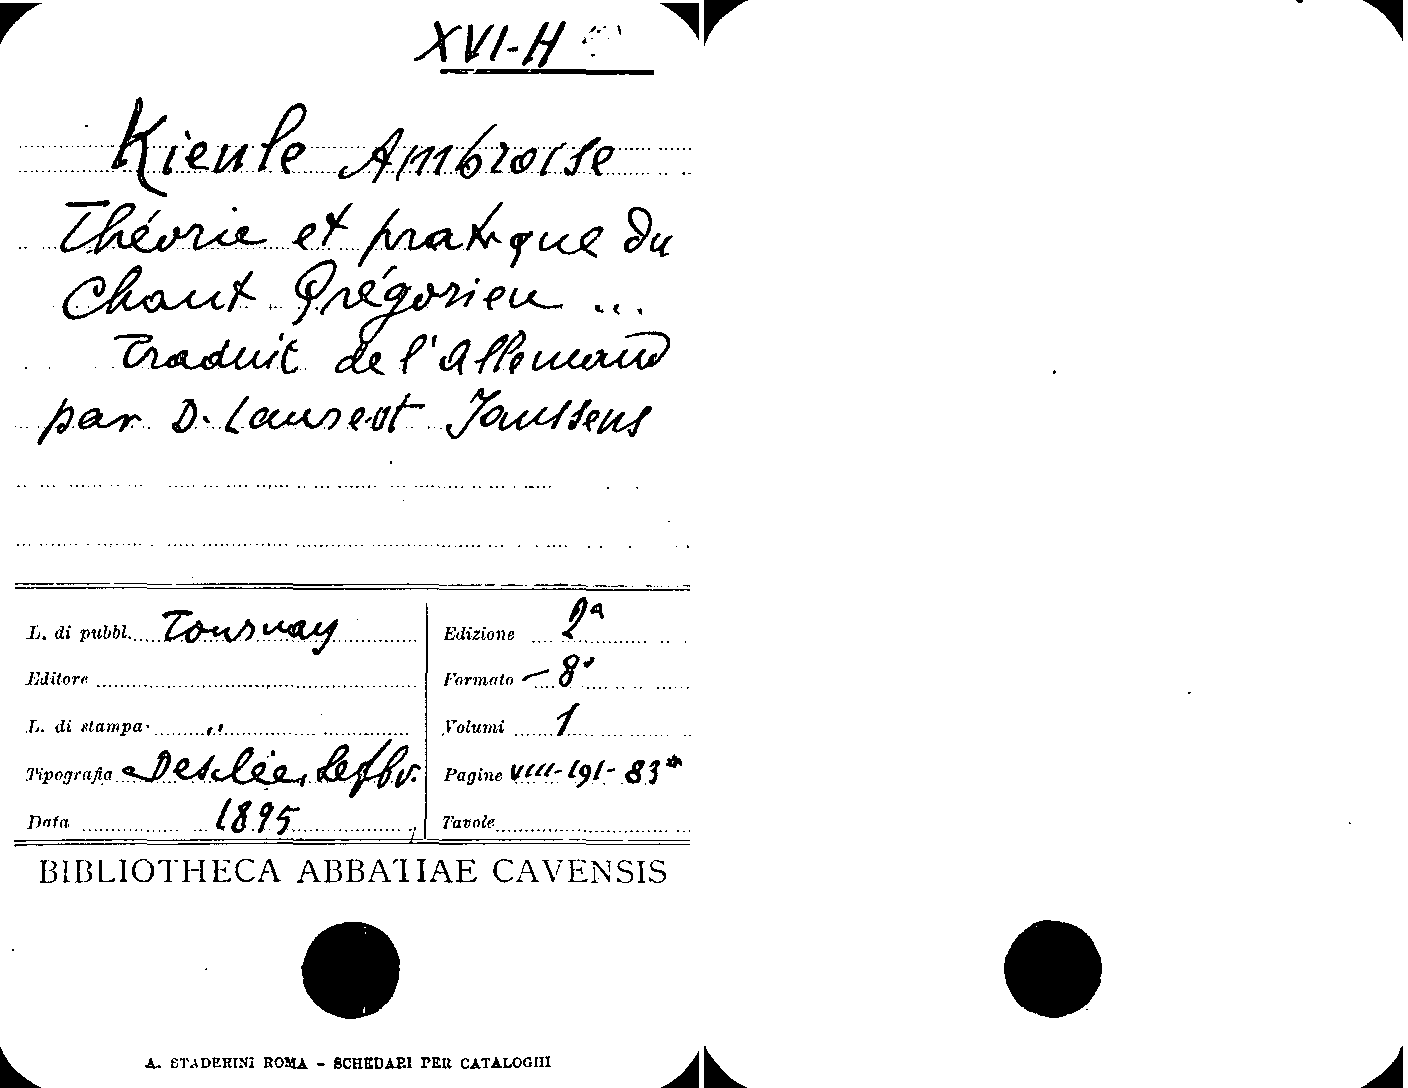 XVI-H
Kienle Ambroise
Théorie et pratique du
Chant Grégorien ...
Traduit de l'Allemand
par D. Laurent Janssens
L. di pubbl. Tournay
Edizione 2ª
Editore
Formato - 8°
L. di stampa "
Volumi 1
Tipografia Desclée, Lefbv.
Pagine VIII-191-83*
Data 1895
Tavole
BIBLIOTHECA ABBATIAE CAVENSIS
A. STADERINI ROMA - SCHEDARI PER CATALOGHI